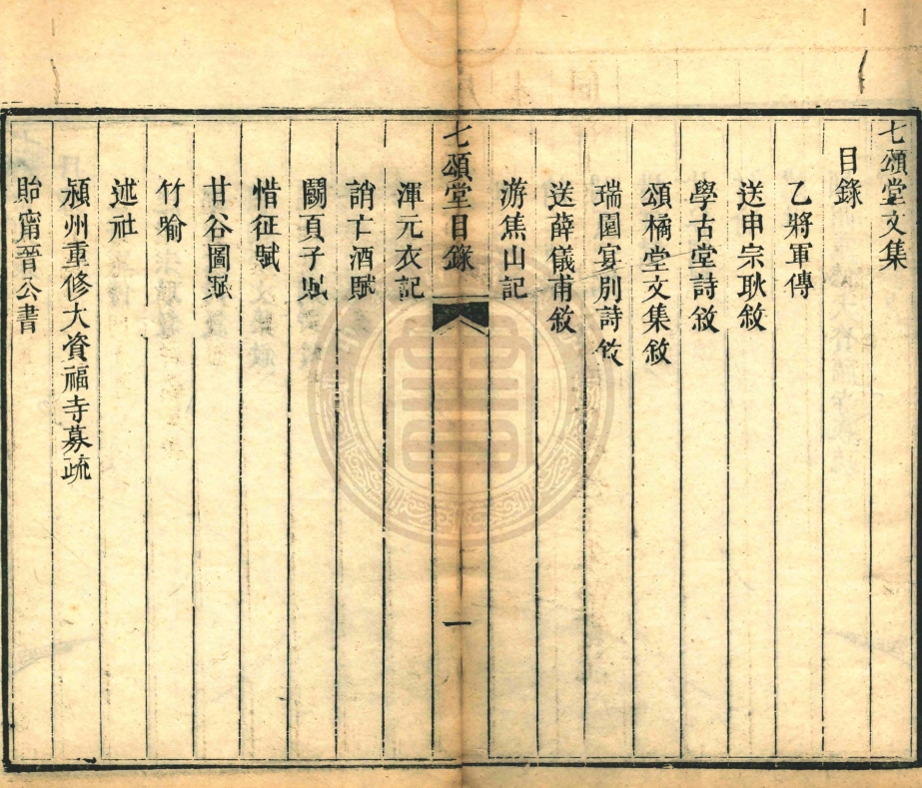 七頌堂文集
目錄
乙將軍傳
送申宗耿敘
學古堂詩敘
頌橘堂文集敘
瑞園宴別詩敘
送薛儀甫敘
游焦山記
七頌堂目錄
一
渾元衣記
誚亡酒賦
鬬頁子賦
惜征賦
甘谷圖賦
竹喻
述社
潁州重修大資福寺募疏
貽甯晉公書